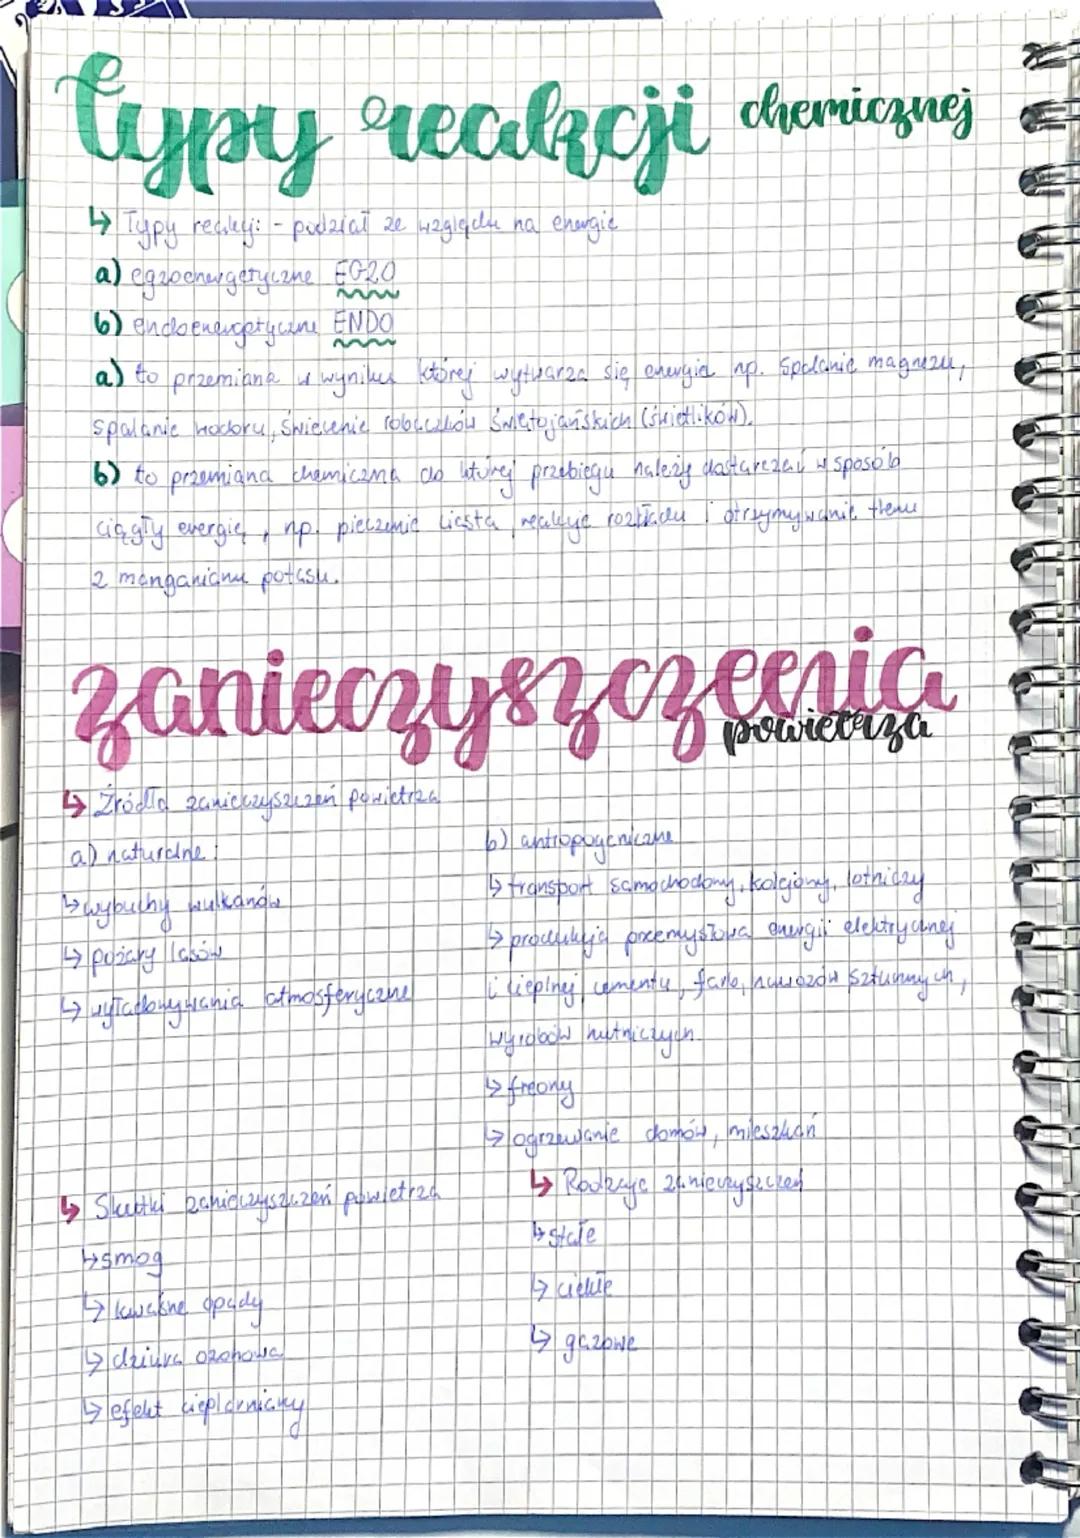 Typy reakcji chemicznej
↳ Typy reakcji: - podział ze względu na energię
a) egzoenergetyczne EGZO
b) endoenergetyczne ENDO
a) to przemiana w wyniku której wytwarza się energia np. spalanie magnezu,
spalanie wodoru, świecenie robaczków świętojańskich (świetlików).
b) to przemiana chemiczna do której przebiegu należy dostarczać w sposób
ciągły energię, np. pieczenie ciasta, reakcje rozkładu i otrzymywanie tlenu
z manganianu potasu.
zanieczyszczenia
powietrza
↳ Źródła zanieczyszczeń powietrza
a) naturalne:
↳ wybuchy wulkanów
↳ pożary lasów
↳ wyładowywania atmosferyczne
b) antropogeniczne
↳ transport samochodowy, kolejowy, lotniczy
↳ produkcja przemysłowa energii elektrycznej
i cieplnej, cementu, farb, nawozów sztucznych,
wyrobów hutniczych
↳ freony
↳ ogrzewanie domów, mieszkań
↳ Skutki zanieczyszczeń powietrza
↳ smog
↳ kwaśne opady
↳ dziura ozonowa
↳ efekt cieplarniany
↳ Rodzaje zanieczyszczeń
↳ stałe
↳ ciekłe
↳ gazowe